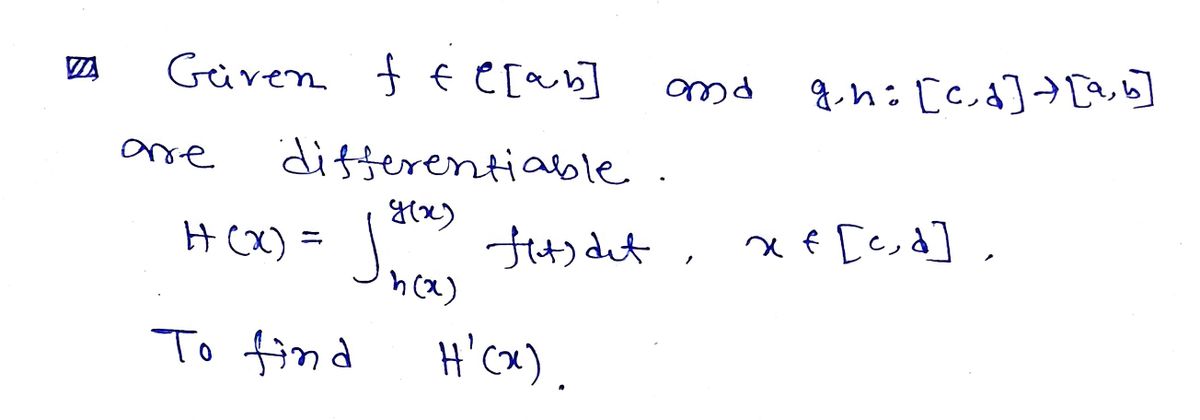 Given f ∈ C[a,b] and g,h: [c,d]→[a,b]
are differentiable.
H(x) = ∫_{h(x)}^{g(x)} f(t) dt, x ∈ [c,d].
To find H'(x).